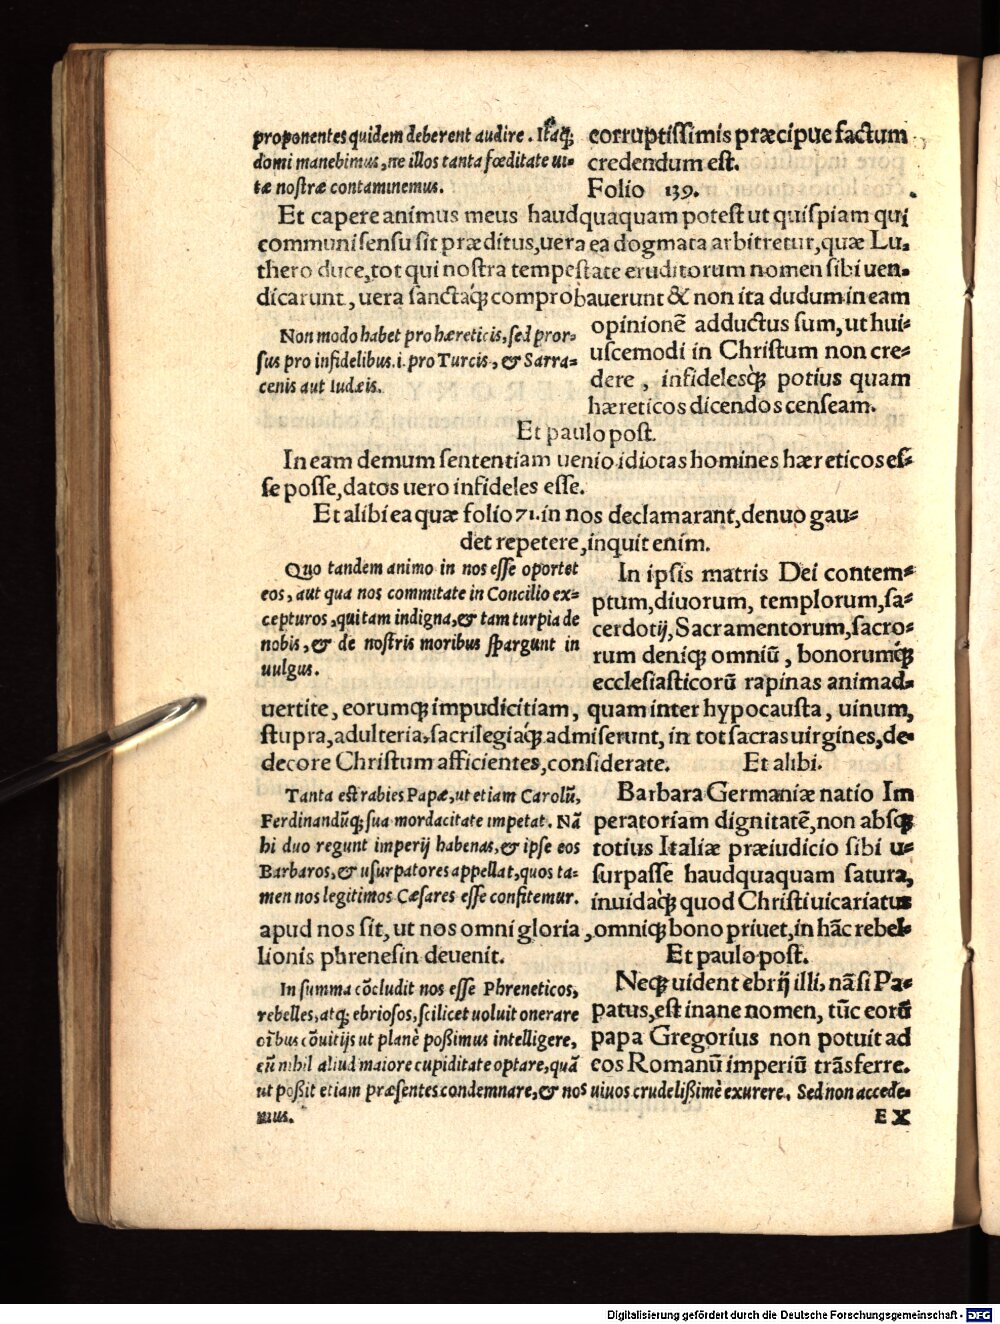 proponentes quidem deberent audire. Itaq́;
domi manebimus, ne illos tanta fœditate ui-
tæ nostræ contaminemus.
corruptissimis præcipue factum
credendum est.
Folio 139.
Et capere animus meus haudquaquam potest ut quispiam qui
communi sensu sit præditus, uera ea dogmata arbitretur, quæ Lu-
thero duce, tot qui nostra tempestate eruditorum nomen sibi uen-
dicarunt, uera sanctaq́; comprobauerunt & non ita dudum in eam
Non modo habet pro hæreticis, sed pror-
sus pro infidelibus .i. pro Turcis, & Sarra-
cenis aut Iudæis.
opinionē adductus sum, ut hui-
uscemodi in Christum non cre-
dere, infidelesq́; potius quam
hæreticos dicendos censeam.
Et paulo post.
In eam demum sententiam uenio idiotas homines hæreticos es-
se posse, datos uero infideles esse.
Et alibi ea quæ folio 71. in nos declamarant, denuo gau-
det repetere, inquit enim.
Quo tandem animo in nos esse oportet
eos, aut qua nos commitate in Concilio ex-
cepturos, qui tam indigna, & tam turpia de
nobis, & de nostris moribus spargunt in
uulgus.
In ipsis matris Dei contem-
ptum, diuorum, templorum, sa-
cerdotij, Sacramentorum, sacro-
rum deniq; omniū, bonorumq́;
ecclesiasticorū rapinas animad-
uertite, eorumq; impudicitiam, quam inter hypocausta, uinum,
stupra, adulteria, sacrilegiaq́; admiserunt, in tot sacras uirgines, de-
decore Christum afficientes, considerate. Et alibi.
Tanta est rabies Papæ, ut etiam Carolū,
Ferdinandūq; sua mordacitate impetat. Nā
hi duo regunt imperij habenas, & ipse eos
Barbaros, & usurpatores appellat, quos ta-
men nos legitimos Cæsares esse confitemur.
Barbara Germaniæ natio Im
peratoriam dignitatē, non absq;
totius Italiæ præiudicio sibi u-
surpasse haudquaquam satura,
inuidaq́; quod Christi uicariatus
apud nos sit, ut nos omni gloria, omniq; bono priuet, in hāc rebel-
lionis phrenesin deuenit. Et paulo post.
In summa cōcludit nos esse Phreneticos,
rebelles, atq; ebriosos, scilicet uoluit onerare
oībus cōuitijs ut planè possimus intelligere,
eū nihil aliud maiore cupiditate optare, quā
Neq; uident ebrij illi, nā si Pa-
patus, est inane nomen, tūc eorū
papa Gregorius non potuit ad
eos Romanū imperiū trāsferre.
ut possit etiam præsentes condemnare, & nos uiuos crudelissimè exurere. Sed non accede-
mus.
EX
Digitalisierung gefördert durch die Deutsche Forschungsgemeinschaft - DFG